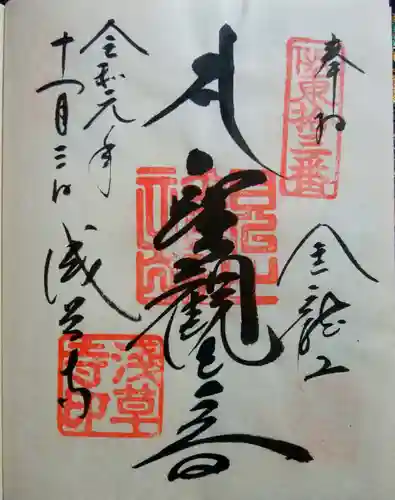 奉拝
坂東拾三番
金龍山
サ 聖観世音
令和元年
十一月三日
浅草寺
浅草寺印